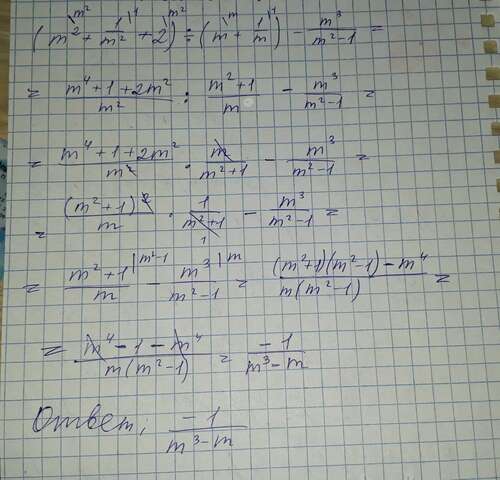 (m² + 1/m² + 2) ÷ (m + 1/m) − m³/(m²−1) =
= (m⁴+1+2m²)/m² : (m²+1)/m − m³/(m²−1) =
= (m⁴+1+2m²)/m² · m/(m²+1) − m³/(m²−1) =
= (m²+1)²/m · 1/(m²+1) − m³/(m²−1) =
= (m²+1)/m |m²−1 − m³/(m²−1) |m = ((m²+1)(m²−1)−m⁴)/(m(m²−1)) =
= (m⁴−1−m⁴)/(m(m²−1)) = −1/(m³−m)
Ответ, −1/(m³−m)